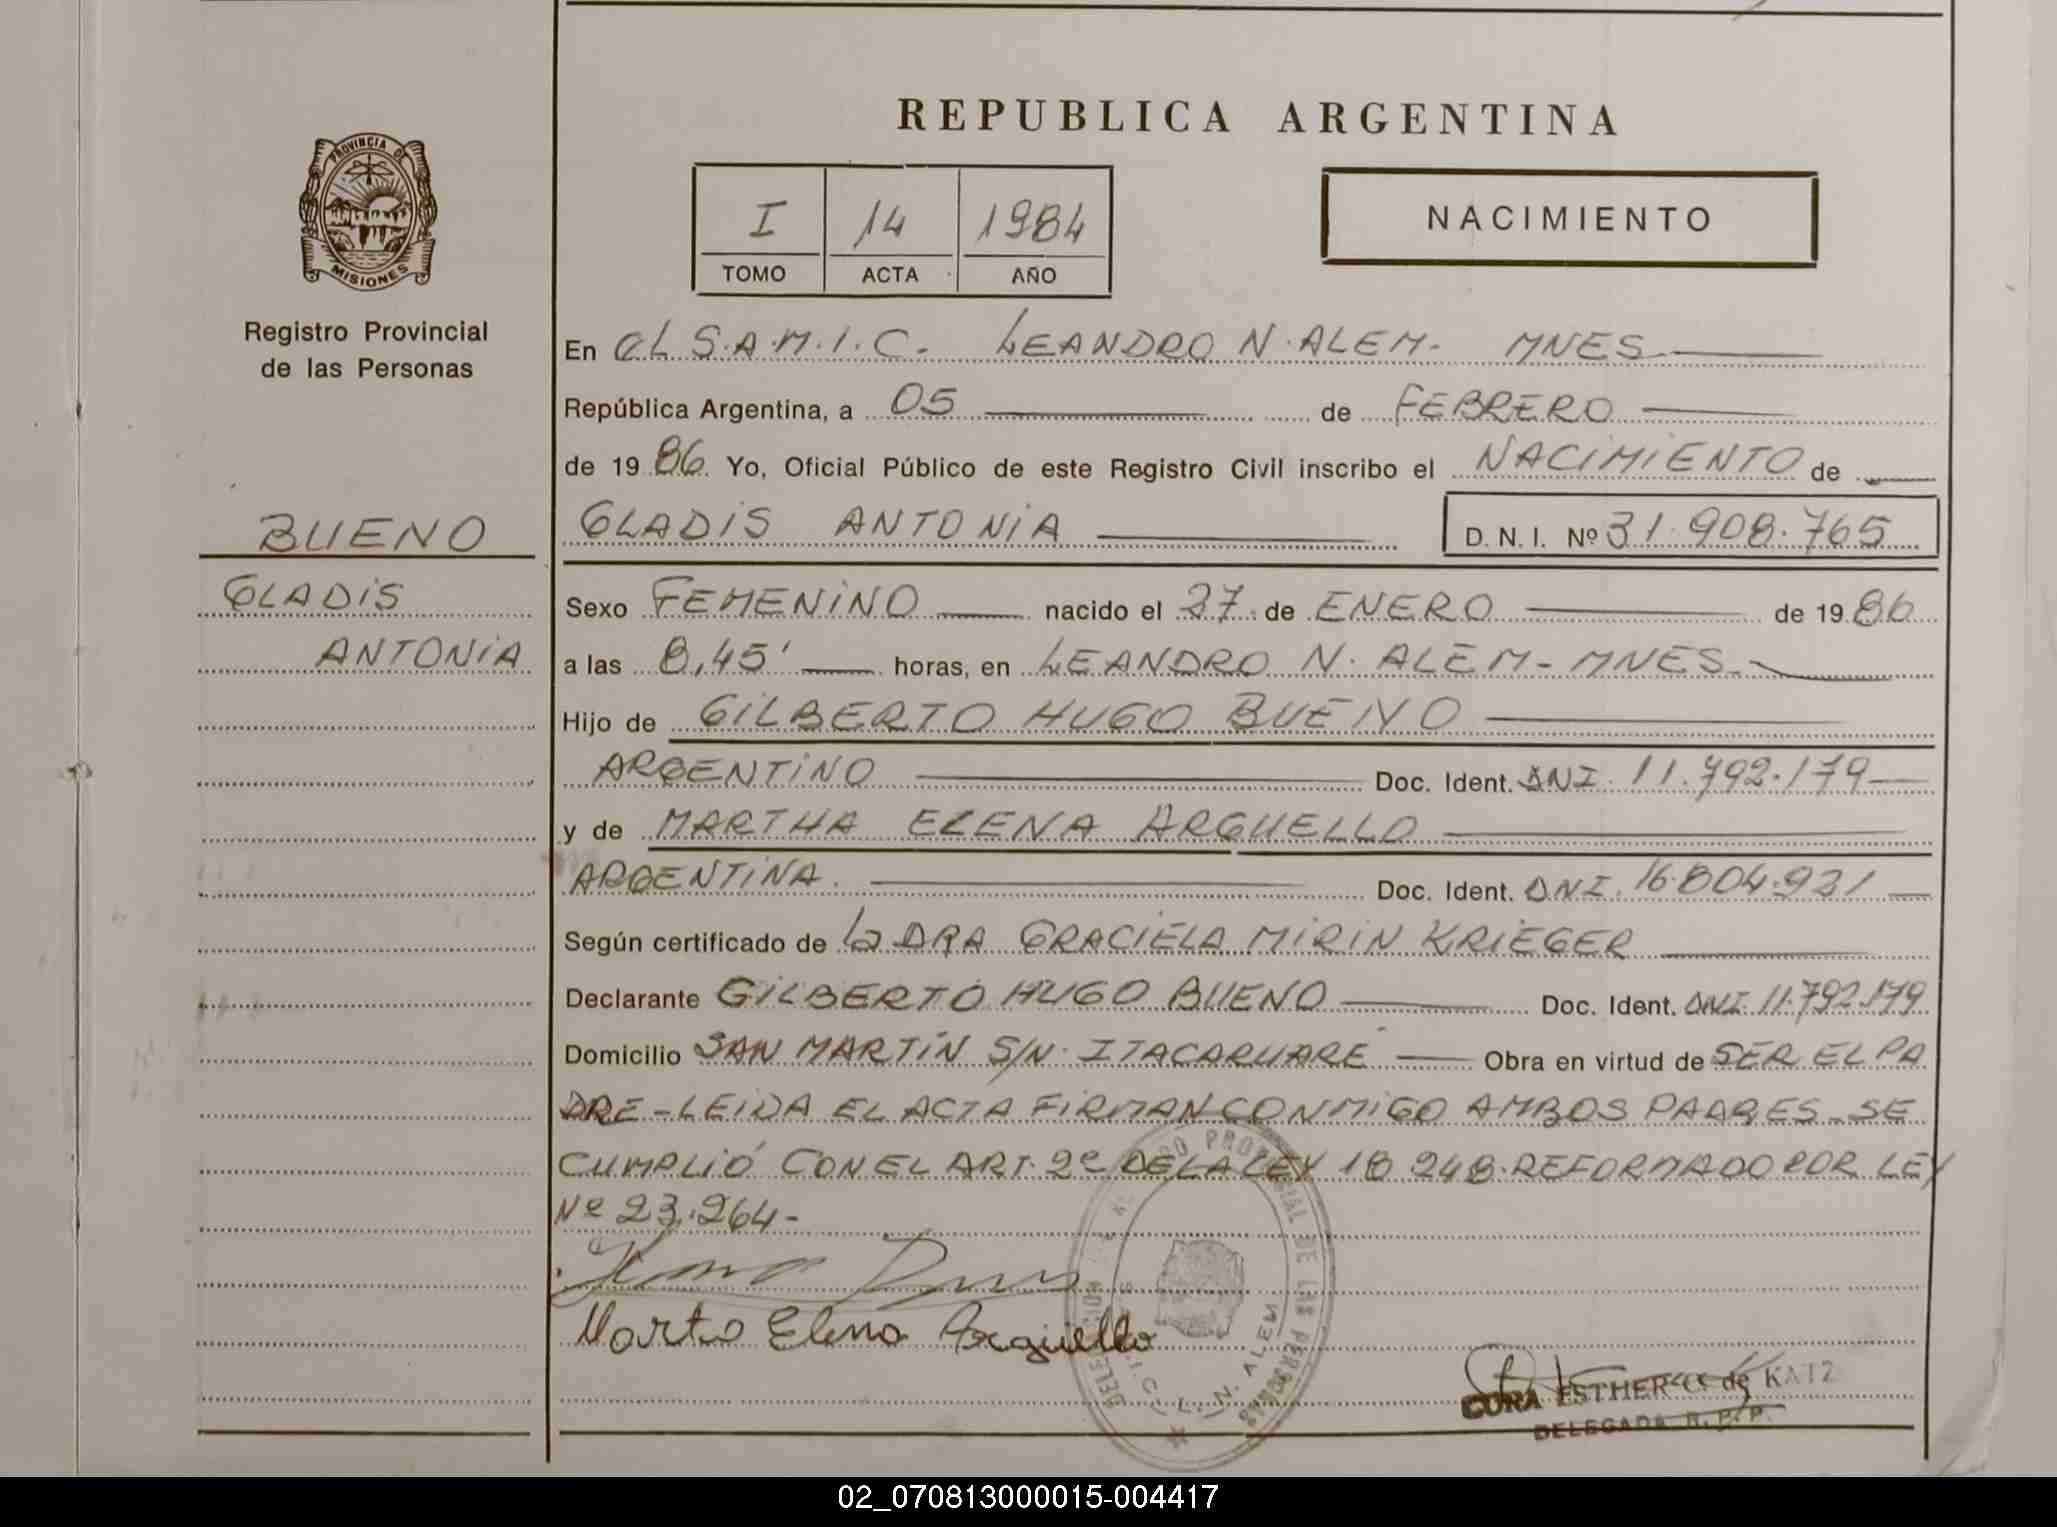 REPUBLICA ARGENTINA
PROVINCIA DE
MISIONES
Registro Provincial
de las Personas
I 14 1984
TOMO ACTA AÑO
NACIMIENTO
En el S.A.M.I.C. LEANDRO N. ALEM - MNES
República Argentina, a 05 de FEBRERO
de 1986. Yo, Oficial Público de este Registro Civil inscribo el NACIMIENTO de
BUENO
GLADIS ANTONIA
D. N. I. Nº 31.908.765
GLADIS
ANTONIA
Sexo FEMENINO nacido el 27 de ENERO de 1986
a las 8,45' horas, en LEANDRO N. ALEM - MNES
Hijo de GILBERTO HUGO BUENO
ARGENTINO Doc. Ident. DNI. 11.792.179
y de MARTHA ELENA ARGUELLO
ARGENTINA. Doc. Ident. DNI. 16.804.931
Según certificado de La DRA GRACIELA MIRIN KRIEGER
Declarante GILBERTO HUGO BUENO Doc. Ident. DNI. 11.792.179
Domicilio SAN MARTÍN S/N. ITACARUARE Obra en virtud de SER EL PA
DRE - LEIDA EL ACTA FIRMAN CONMIGO AMBOS PADRES - SE
CUMPLIÓ CON EL ART. 2º DE LA LEY 18 248. REFORMADO POR LEY
Nº 23.264 -
Marta Elena Argüello
L. N. ALEM
ESTHER de KATZ
DELEGADA R. P. P.
02_070813000015-004417